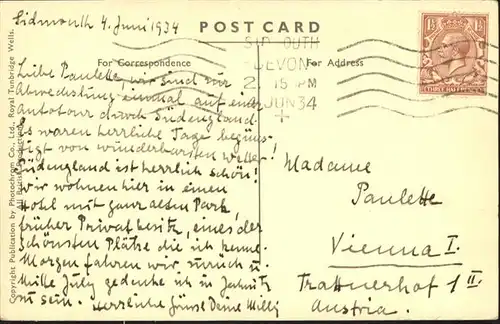 Sidmouth 4. Juni 1934
POST CARD
For Correspondence
For Address
SIDMOUTH
DEVON
2 15 PM
JUN 34
THREE HALFPENCE
Liebe Paulette, wir sind zur
Abwechslung einmal auf einer
Autotour durch Südengland.
Es waren herrliche Tage begüns-
tigt von wunderbarsten Wetter!
Südengland ist herrlich schön!
Wir wohnen hier in einen
Hotel mit ganz alten Park,
früher Privatbesitz, eines der
schönsten Plätze die ich kenne.
Morgen fahren wir zurück u.
Mitte July gedenke ich in
zu sein. Herzliche Grüsse Deine Willy
Madame
Paulette
Vienna I.
Trattnerhof 1 II
Austria.
Copyright Publication by Photochrom Co., Ltd., Royal Tunbridge Wells.